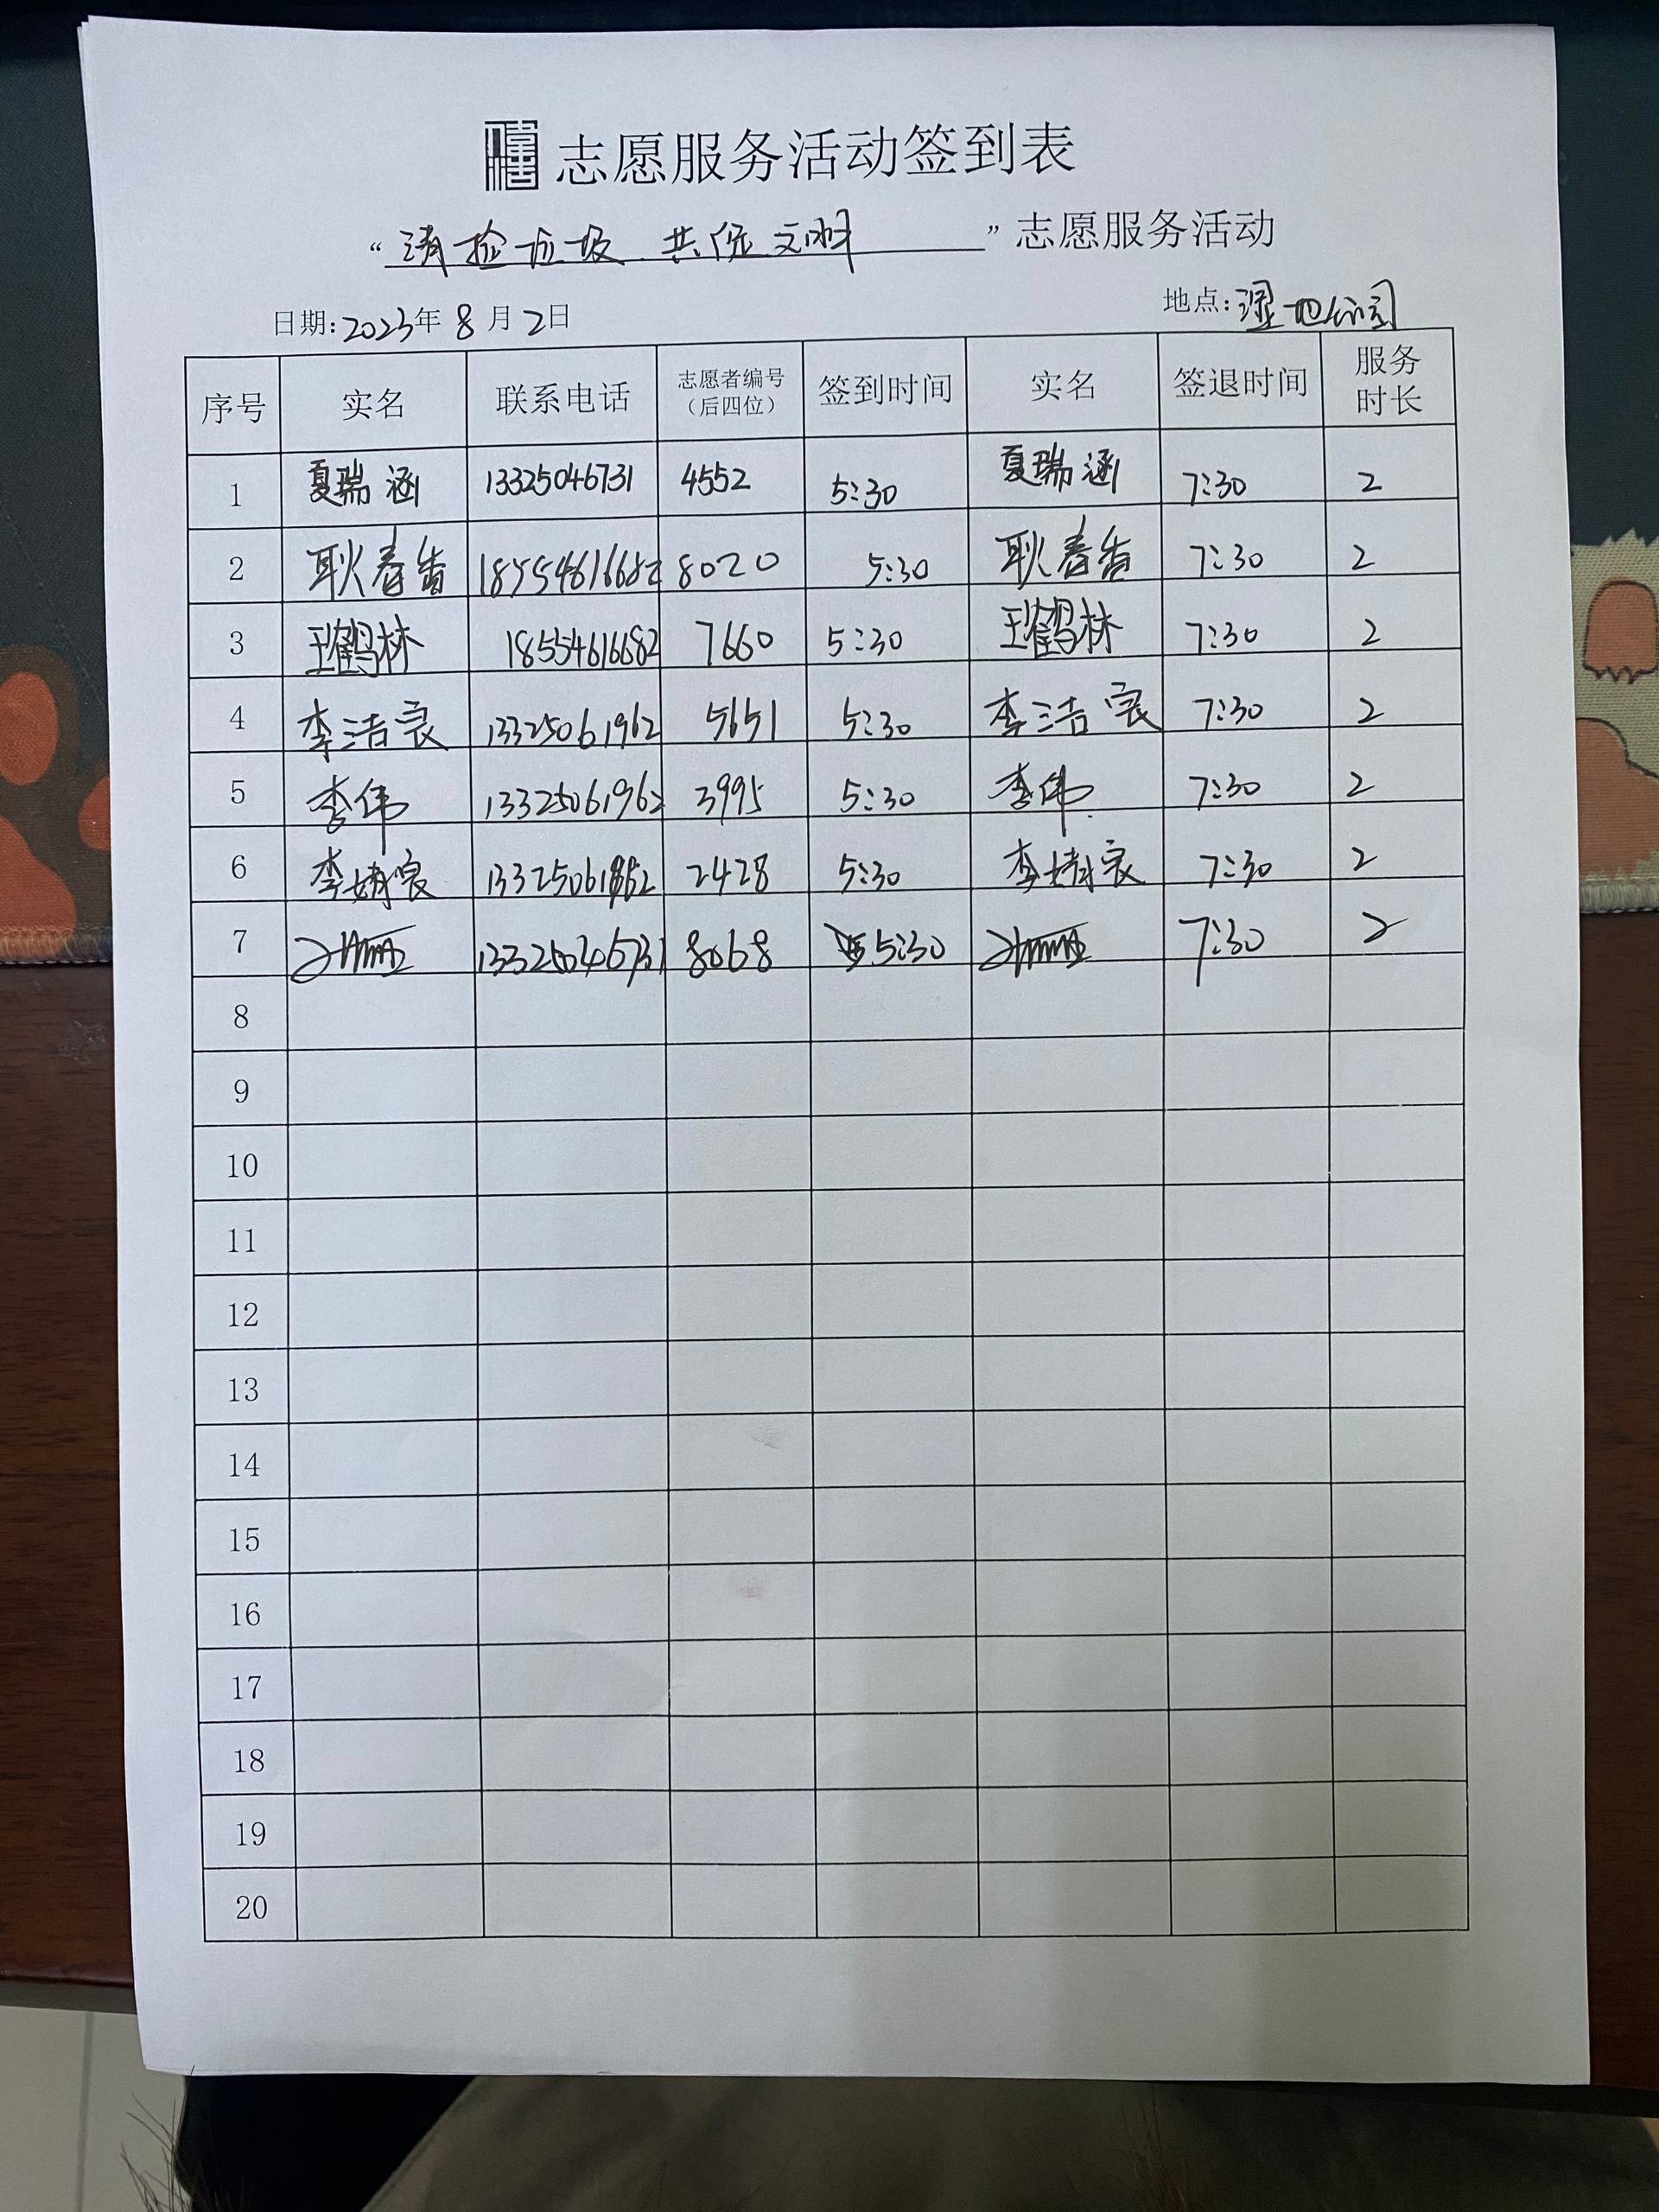 志愿服务活动签到表
“清捡垃圾 共促文明”志愿服务活动
日期:2023年8月2日 地点:湿地公园
序号 实名 联系电话 志愿者编号（后四位） 签到时间 实名 签退时间 服务时长
1 夏瑞涵 13325046731 4552 5:30 夏瑞涵 7:30 2
2 耿春香 18554616682 8020 5:30 耿春香 7:30 2
3 王鹤林 18554616682 7660 5:30 王鹤林 7:30 2
4 李洁宸 13325061962 5651 5:30 李洁宸 7:30 2
5 李伟 13325061962 3995 5:30 李伟 7:30 2
6 李婧宸 2428 5:30 李婧宸 7:30 2
7 13325046731 8068 5:30 7:30 2
8
9
10
11
12
13
14
15
16
17
18
19
20